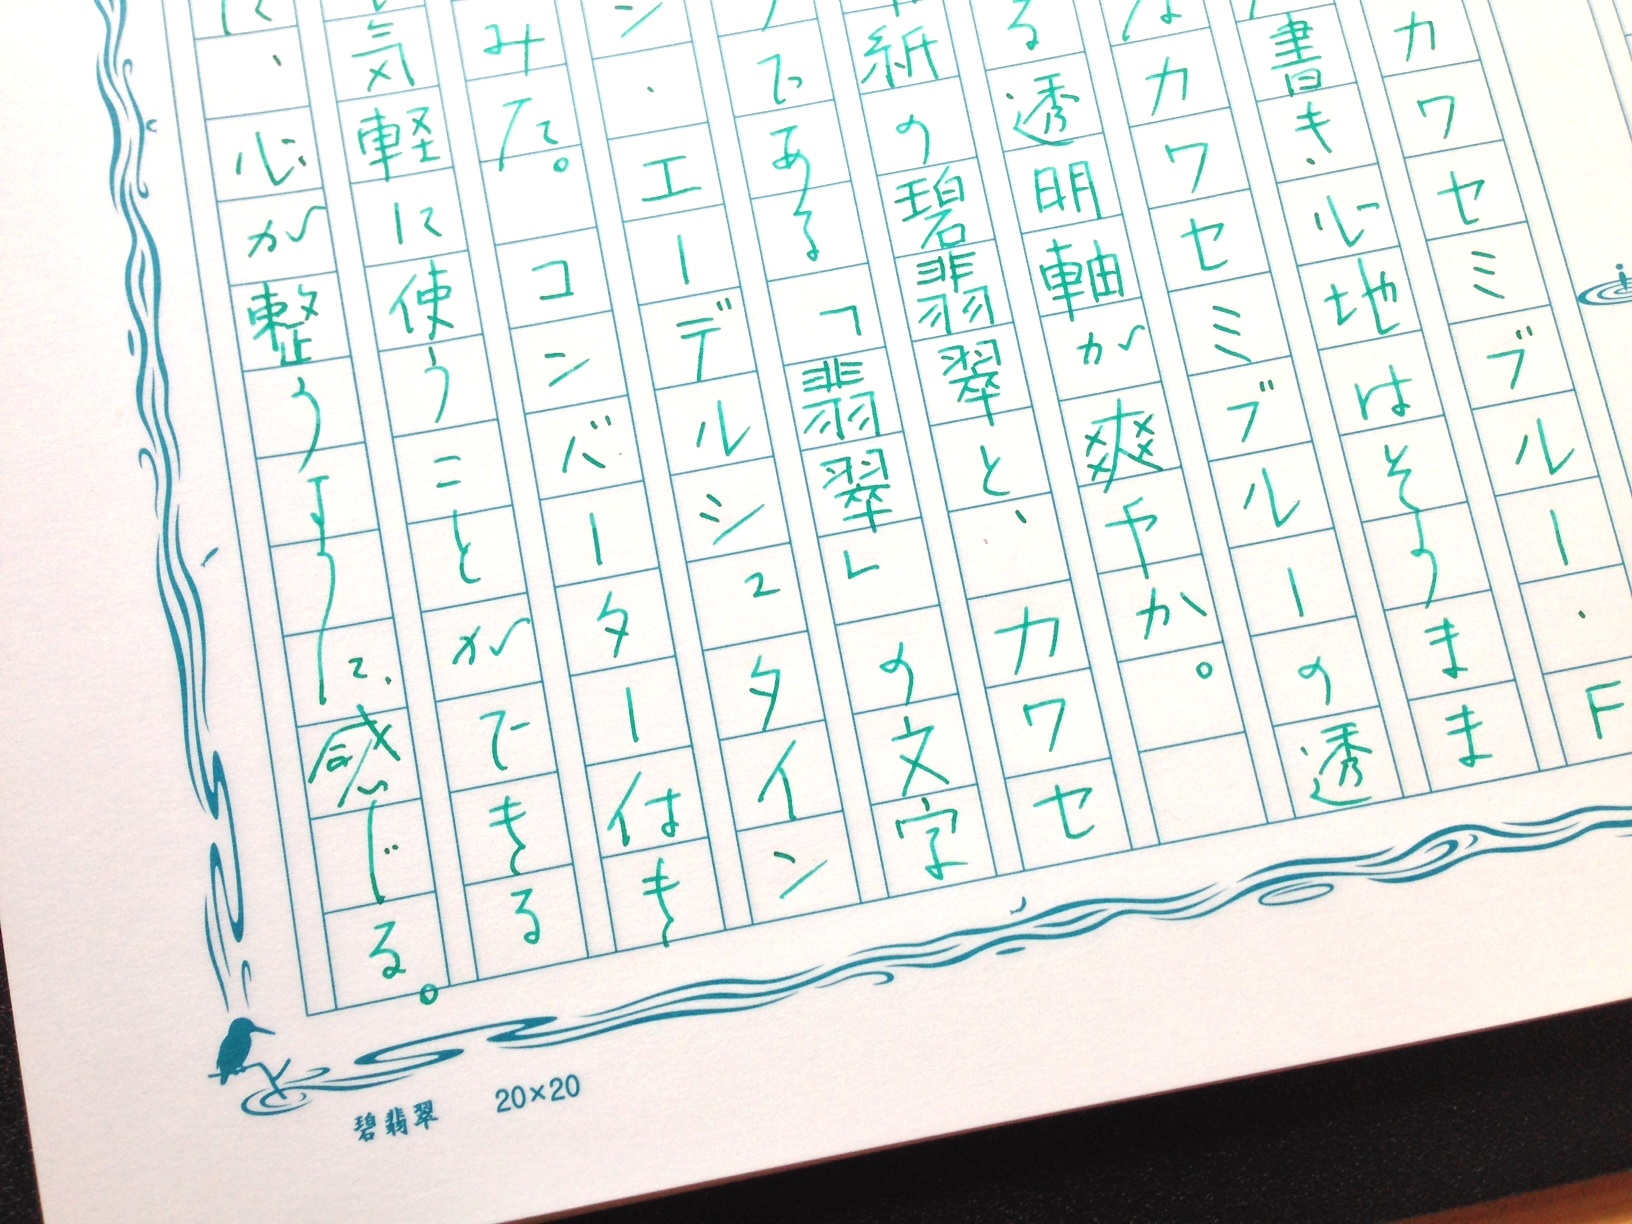 カワセミブルー・F
書き心地はそのまま
なカワセミブルーの透
る透明軸が爽やか。
紙の碧翡翠と、カワセ
である「翡翠」の文字
ン・エーデルシュタイン
みた。コンバーター付き
気軽に使うことができる
、心が整うように感じる。
碧翡翠 20×20